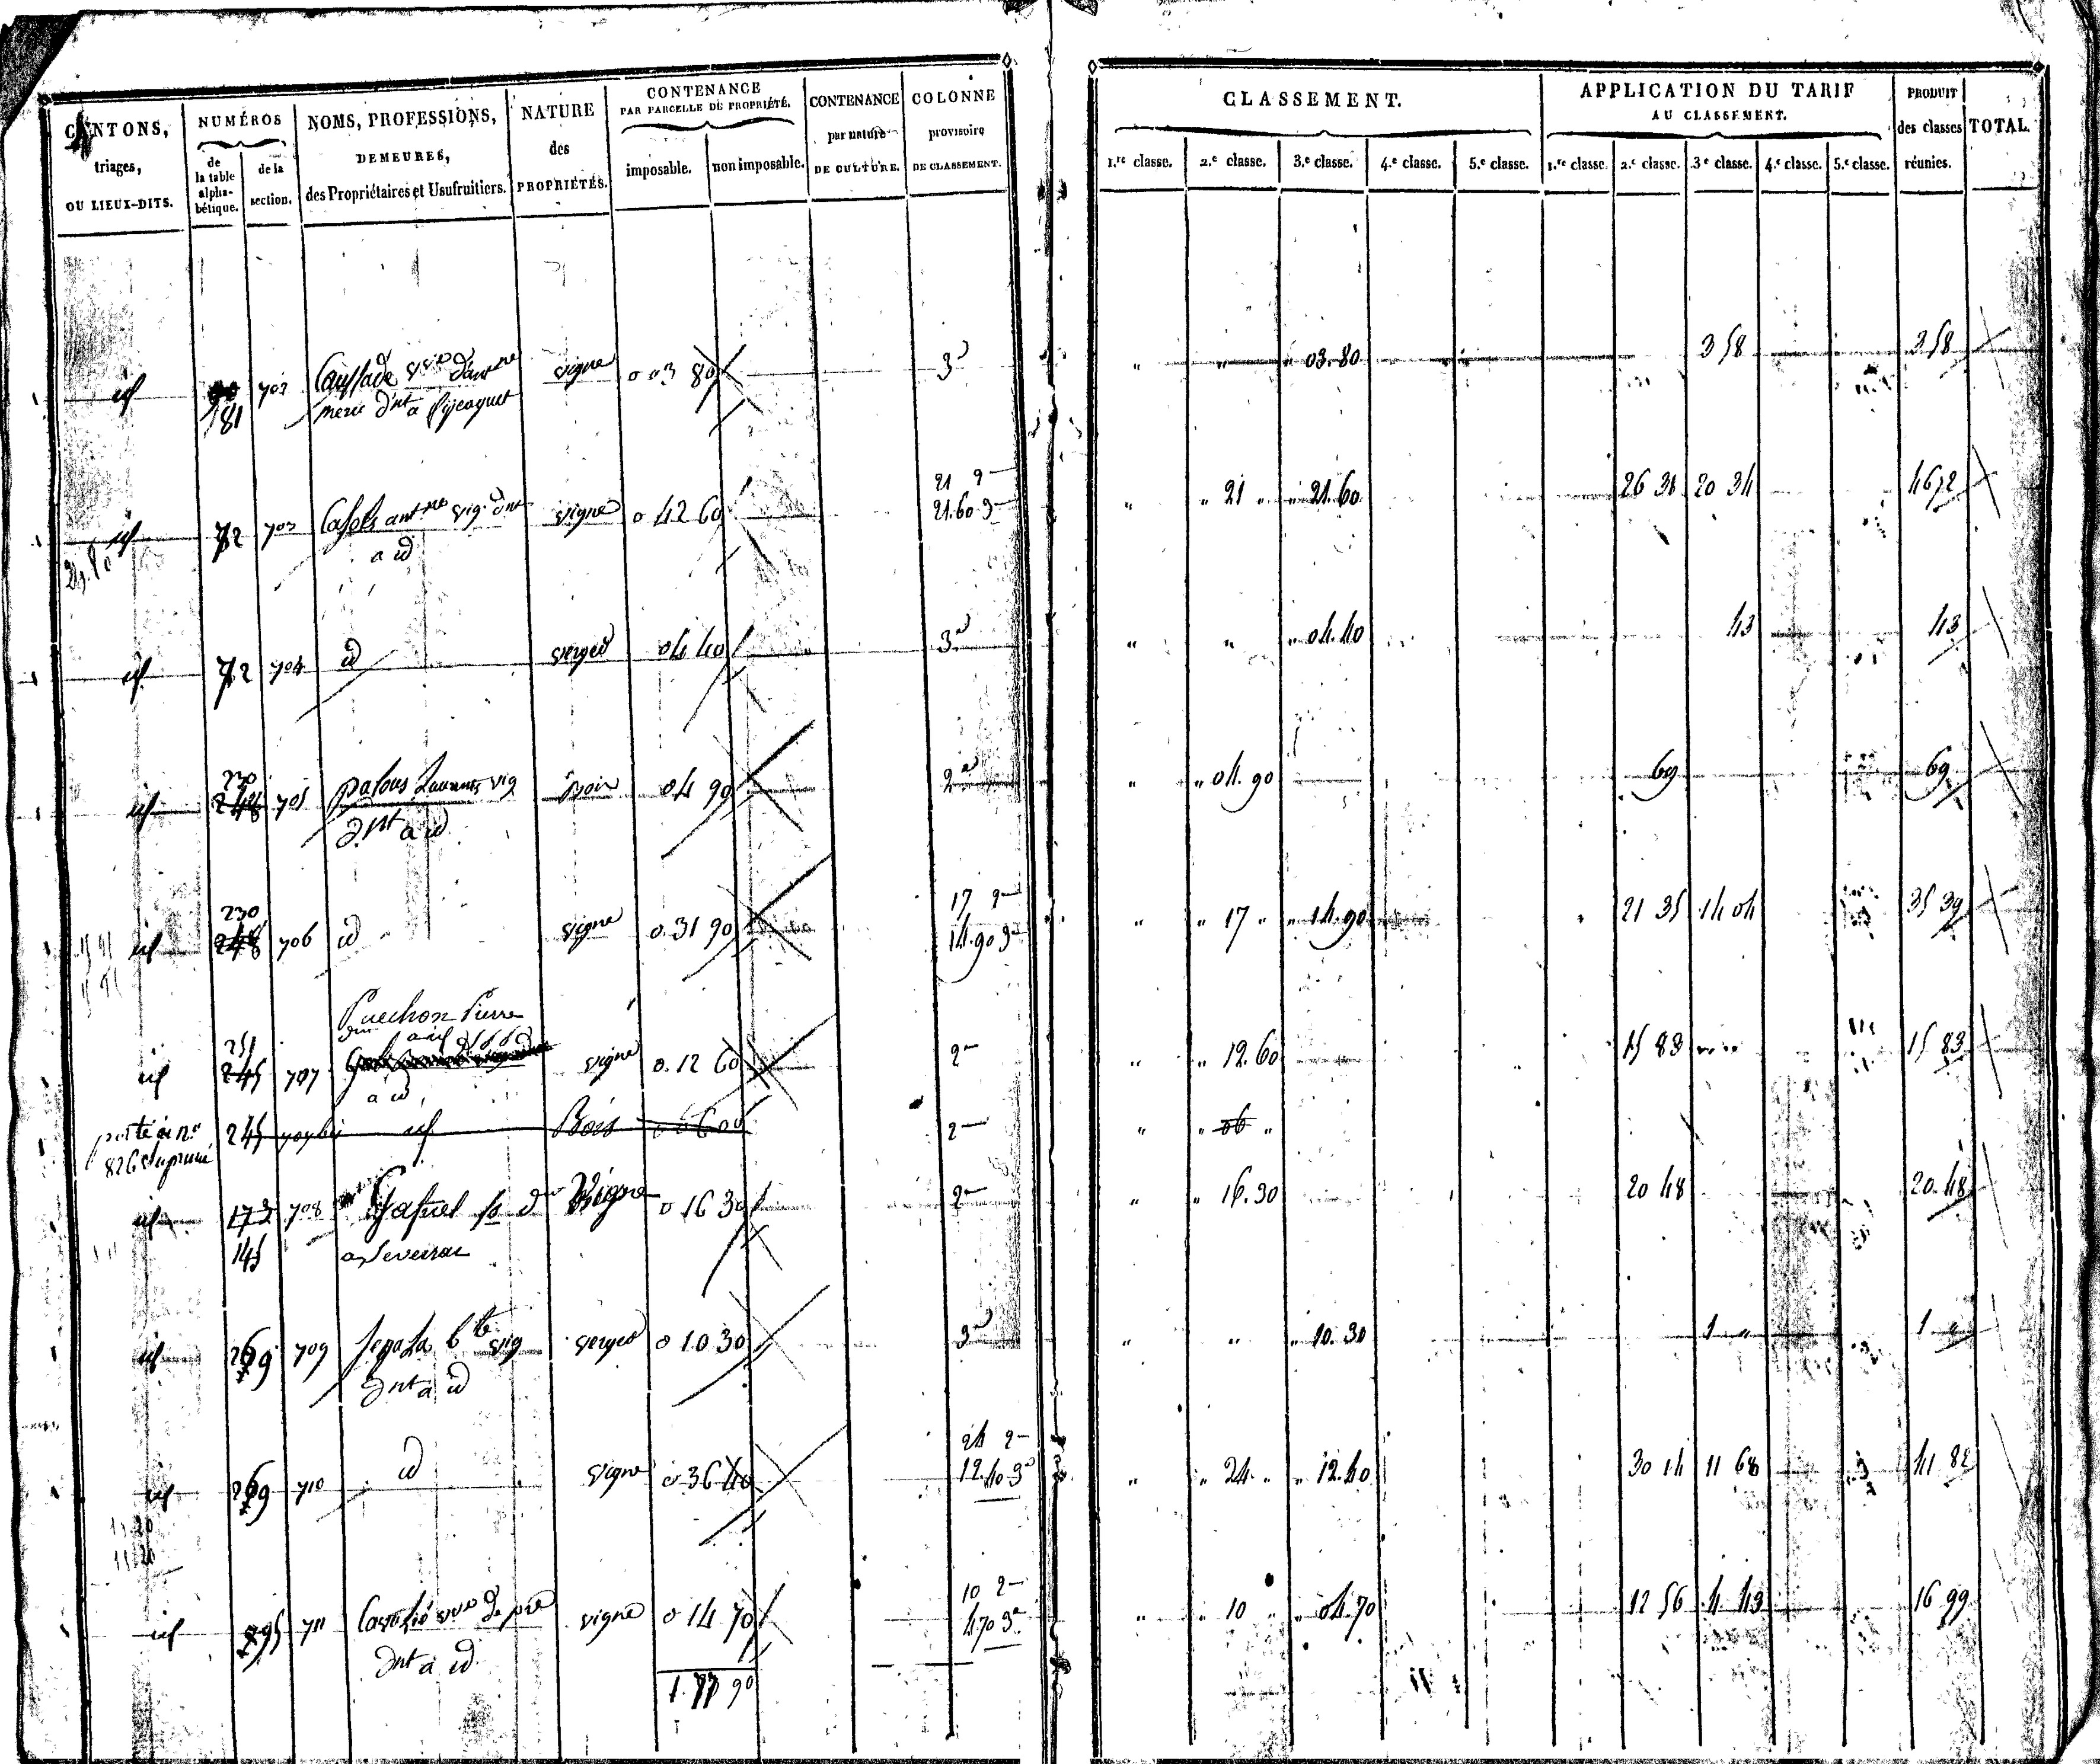 CANTONS, triages, OU LIEUX-DITS.
NUMÉROS
de la table alpha-bétique.
de la section.
NOMS, PROFESSIONS, DEMEURES, des Propriétaires et Usufruitiers.
NATURE des PROPRIÉTÉS.
CONTENANCE PAR PARCELLE DE PROPRIÉTÉ.
imposable.
non imposable.
CONTENANCE par nature DE CULTURE.
COLONNE provisoire DE CLASSEMENT.
CLASSEMENT.
1.re classe. 2.e classe. 3.e classe. 4.e classe. 5.e classe.
APPLICATION DU TARIF AU CLASSEMENT.
1.re classe. 2.e classe. 3.e classe. 4.e classe. 5.e classe.
PRODUIT des classes réunies.
TOTAL.
id 181 vigne 0 03 80 3e " " " 03.80 3 58 3 58
id 72 703 vig. dnt vigne 0 42 60 21 2e " " 21 " " 21.60 20 34 46 72
a id 21.60 3e
id 72 704 id verger 04 40 3e " " " 04.40 43 43
230
id 248 705 palous Laurens vig 04 90 2e " " 04.90 69 69
dnt a id
230 17 2e
id 248 706 id vigne 0.31 90 14.90 3e " " 17 " " 14.90 21 35 14 04 35 39
Puechon Pierre
251
id 245 707 vigne 0.12 60 2e " " 12.60 15 83 15 83
a id
porté au n.o 245 707 bis id Bois 0 06 00 2e " " 06 "
826 suprimé
id 173 708 Vigne 0 16 30 2e " " 16.30 20 48 20.48
145 a Severac
id 269 709 vig verger 0 10 30 3e " " " 10.30 1 " 1 "
dnt a id
24 2e
id 269 710 id vigne 0 36 40 12.40 3e " " 24 " " 12.40 30 14 11 68 41 82
10 2e
id 711 vigne 0 14 70 4.70 3e " " 10 " " 04.70 12 56 4 43 16 99
dnt a id
1.77 90